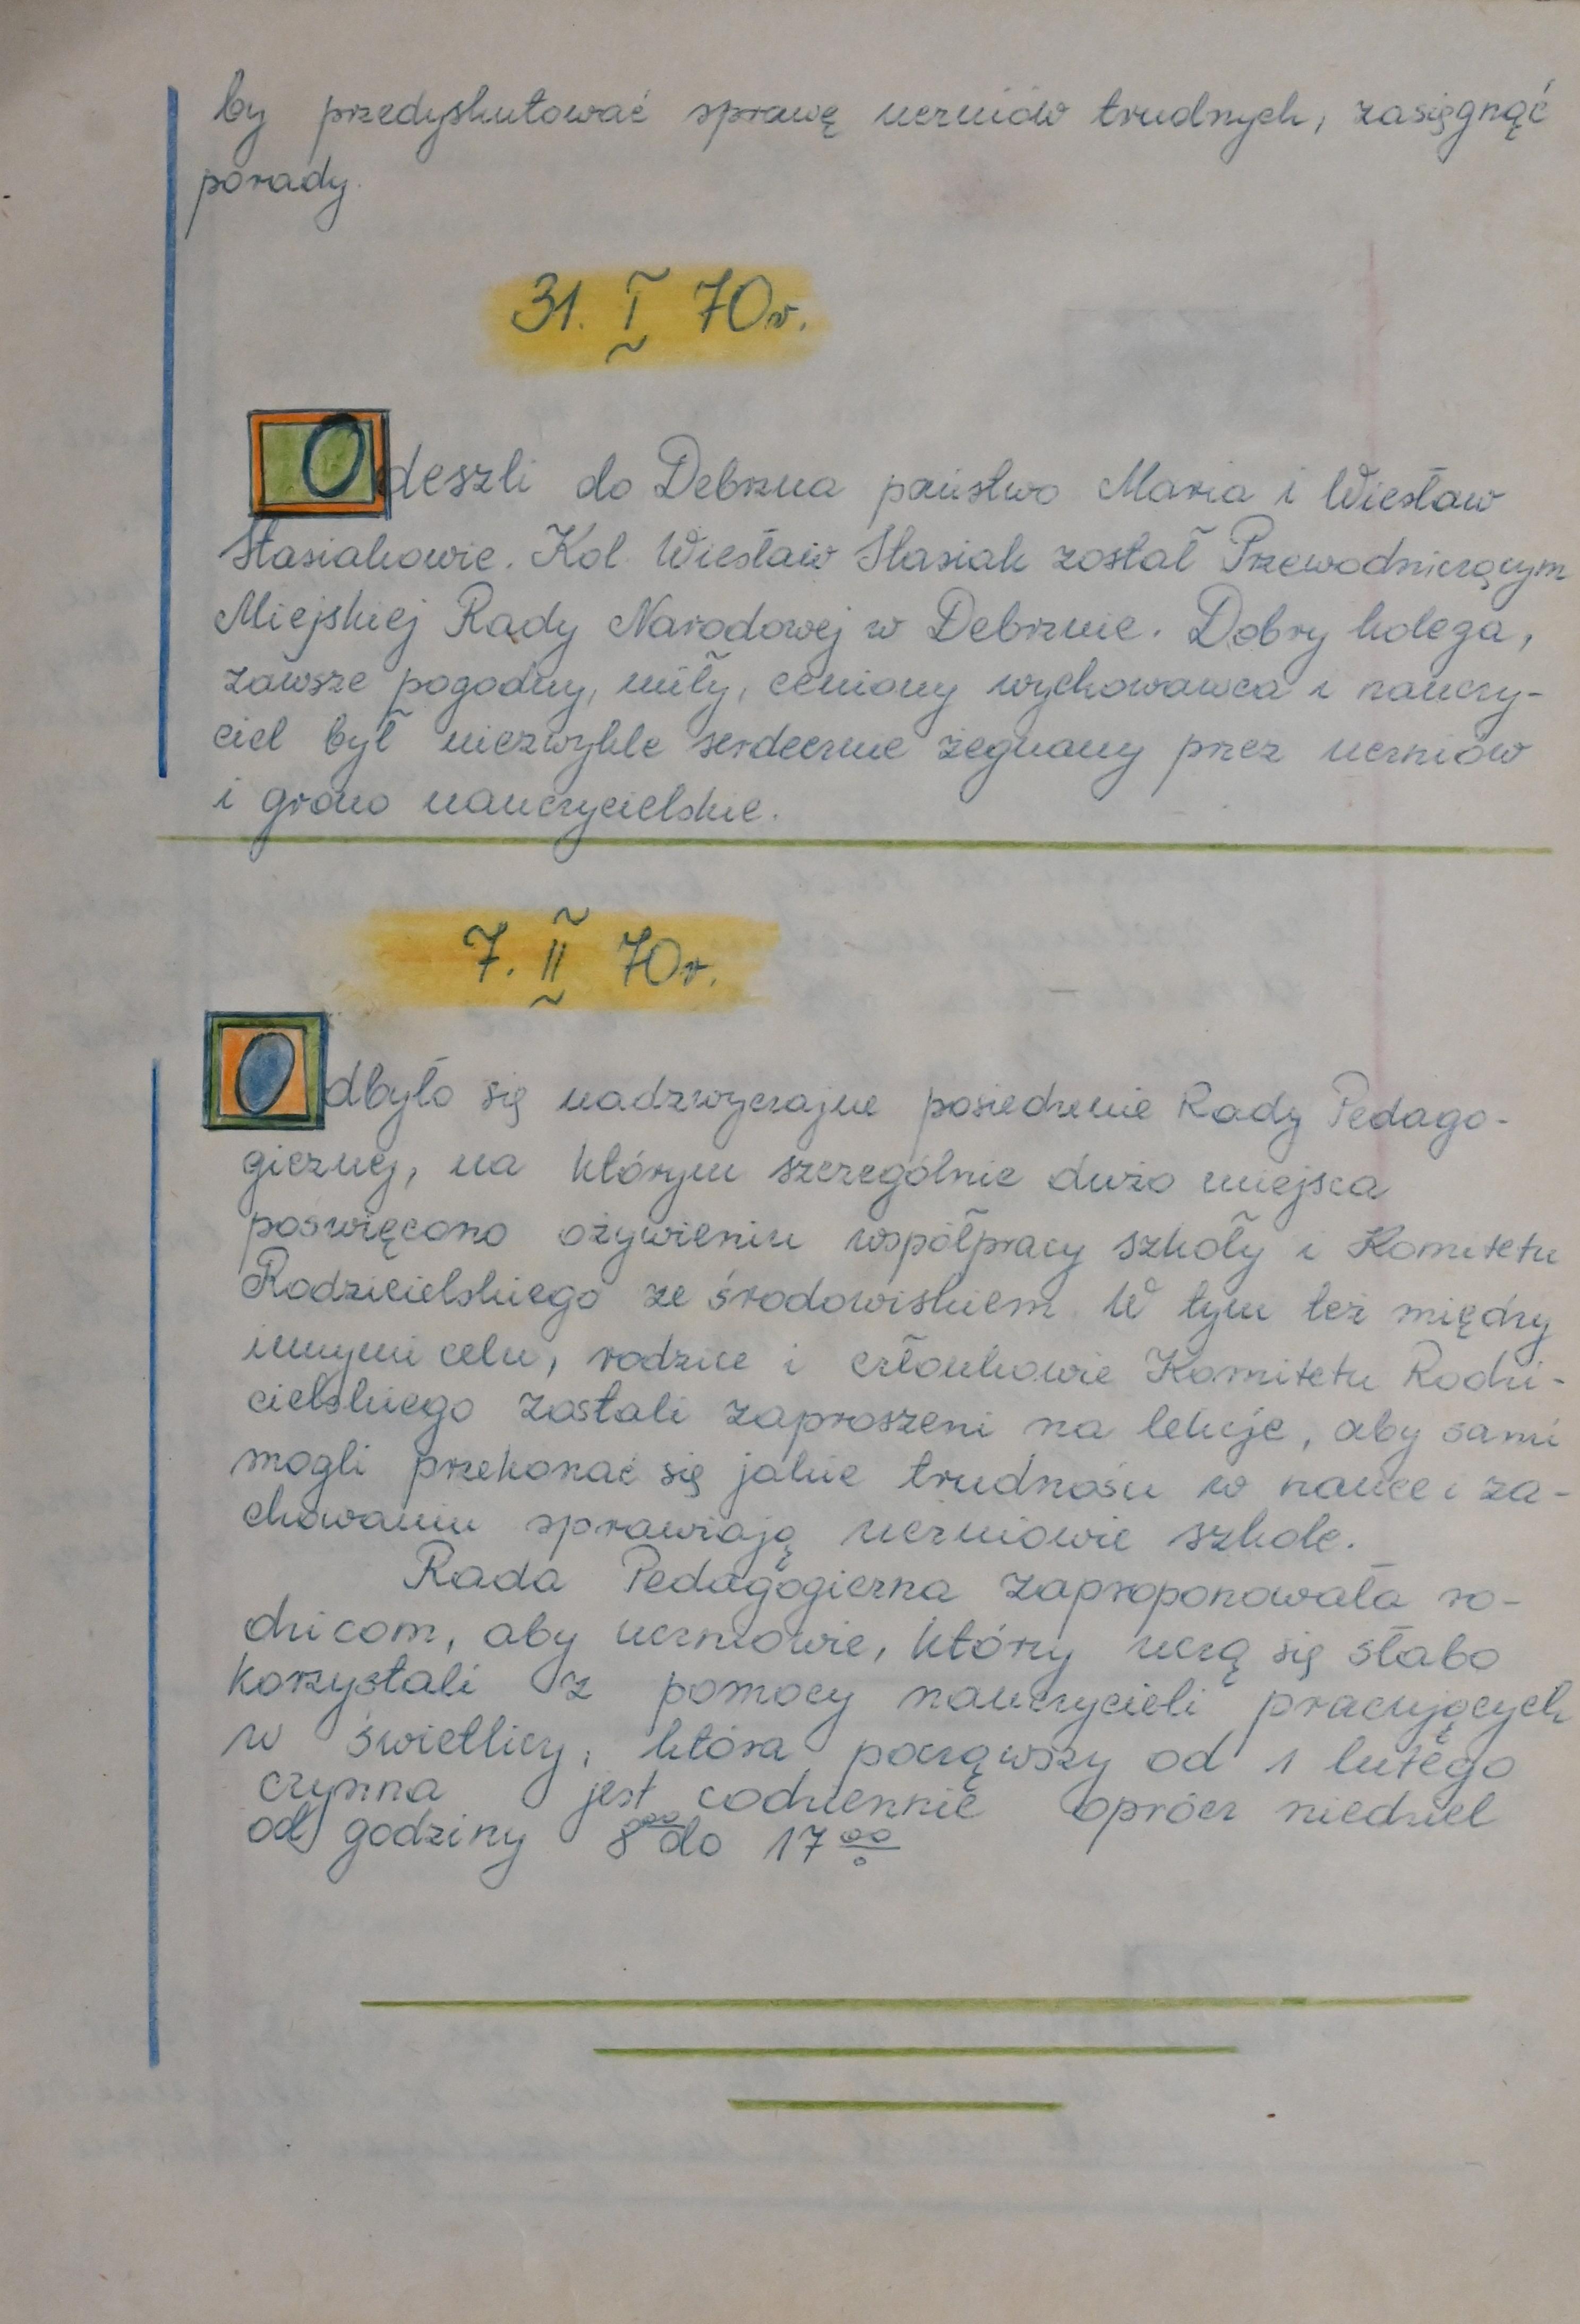 by przedyskutować sprawę uczniów trudnych, zasięgnąć
porady.
31. I 70r.
Odeszli do Debrzna państwo Maria i Wiesław
Stasiakowie. Kol. Wiesław Stasiak został Przewodniczącym
Miejskiej Rady Narodowej w Debrznie. Dobry kolega,
zawsze pogodny, miły, ceniony wychowawca i nauczy-
ciel był niezwykle serdecznie żegnany przez uczniów
i grono nauczycielskie.
7. II 70r.
Odbyło się nadzwyczajne posiedzenie Rady Pedago-
gicznej, na którym szczególnie dużo miejsca
poswięcono ożywieniu współpracy szkoły i Komitetu
Rodzicielskiego ze środowiskiem. W tym też między
innymi celu, rodzice i członkowie Komitetu Rodzi-
cielskiego zostali zaproszeni na lekcje, aby sami
mogli przekonać się jakie trudności w nauce i za-
chowaniu sprawiają uczniowie szkole.
Rada Pedagogiczna zaproponowała ro-
dzicom, aby uczniowie, którzy uczą się słabo
korzystali z pomocy nauczycieli pracujących
w świetlicy, która począwszy od 1 lutego
czynna jest codziennie oprócz niedziel
od godziny 8⁰⁰ do 17⁰⁰